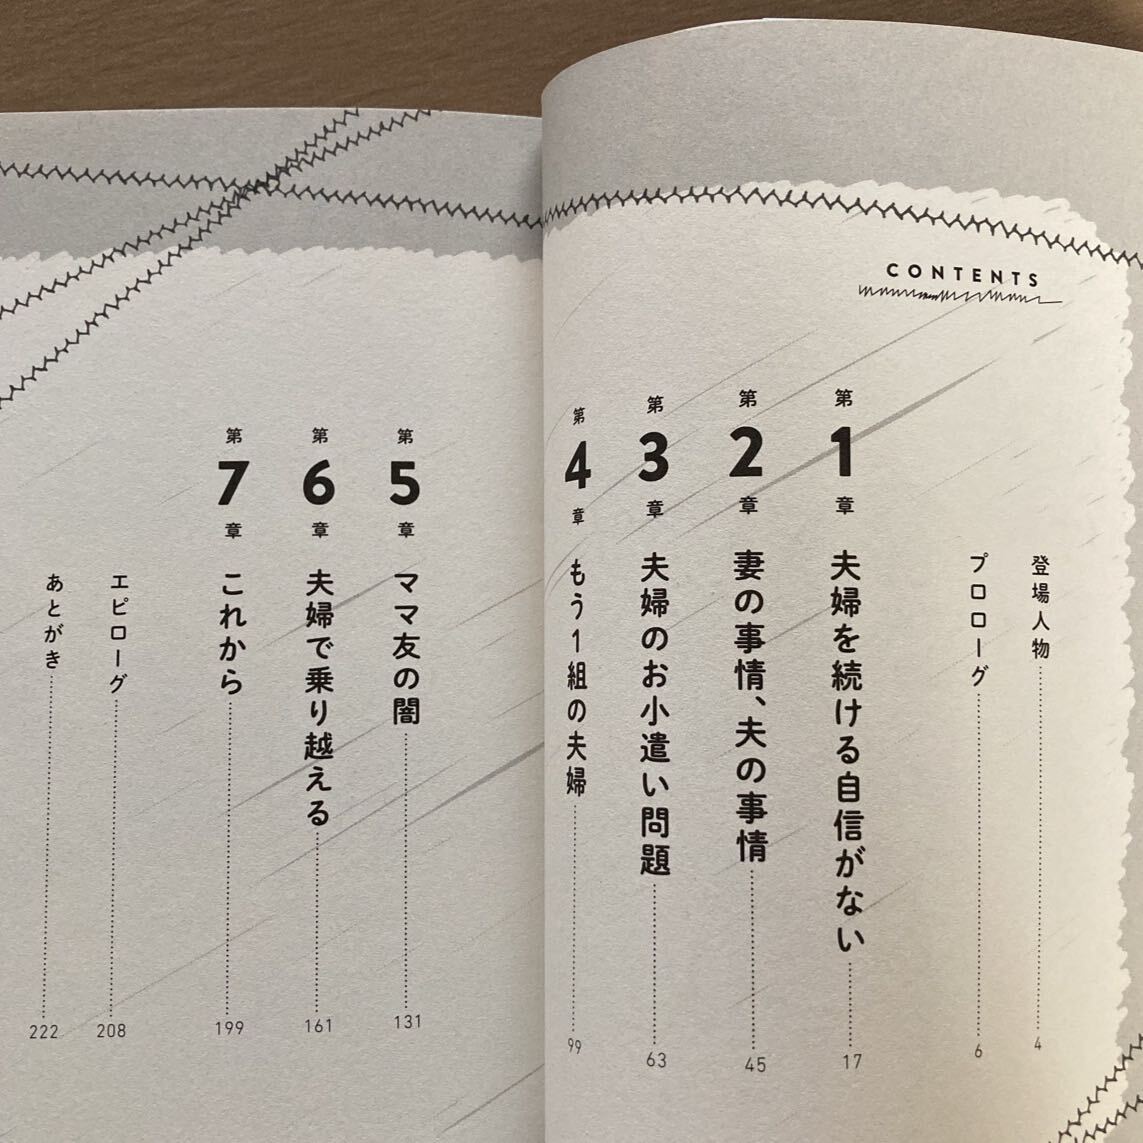 CONTENTS
登場人物 4
プロローグ 6
第1章 夫婦を続ける自信がない 17
第2章 妻の事情、夫の事情 45
第3章 夫婦のお小遣い問題 63
第4章 もう1組の夫婦 99
第5章 ママ友の闇 131
第6章 夫婦で乗り越える 161
第7章 これから 199
エピローグ 208
あとがき 222